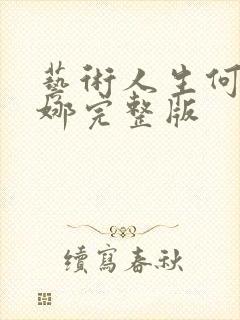 藝術人生何
娜完整版
續寫春秋